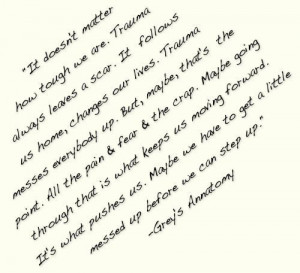 "It doesn't matter
how tough we are. Trauma
always leaves a scar. It follows
us home, changes our lives. Trauma
messes everybody up. But, maybe, that's the
point. All the pain & fear & the crap. Maybe going
through that is what keeps us moving forward.
It's what pushes us. Maybe we have to get a little
messed up before we can step up."
-Grey's Annatomy